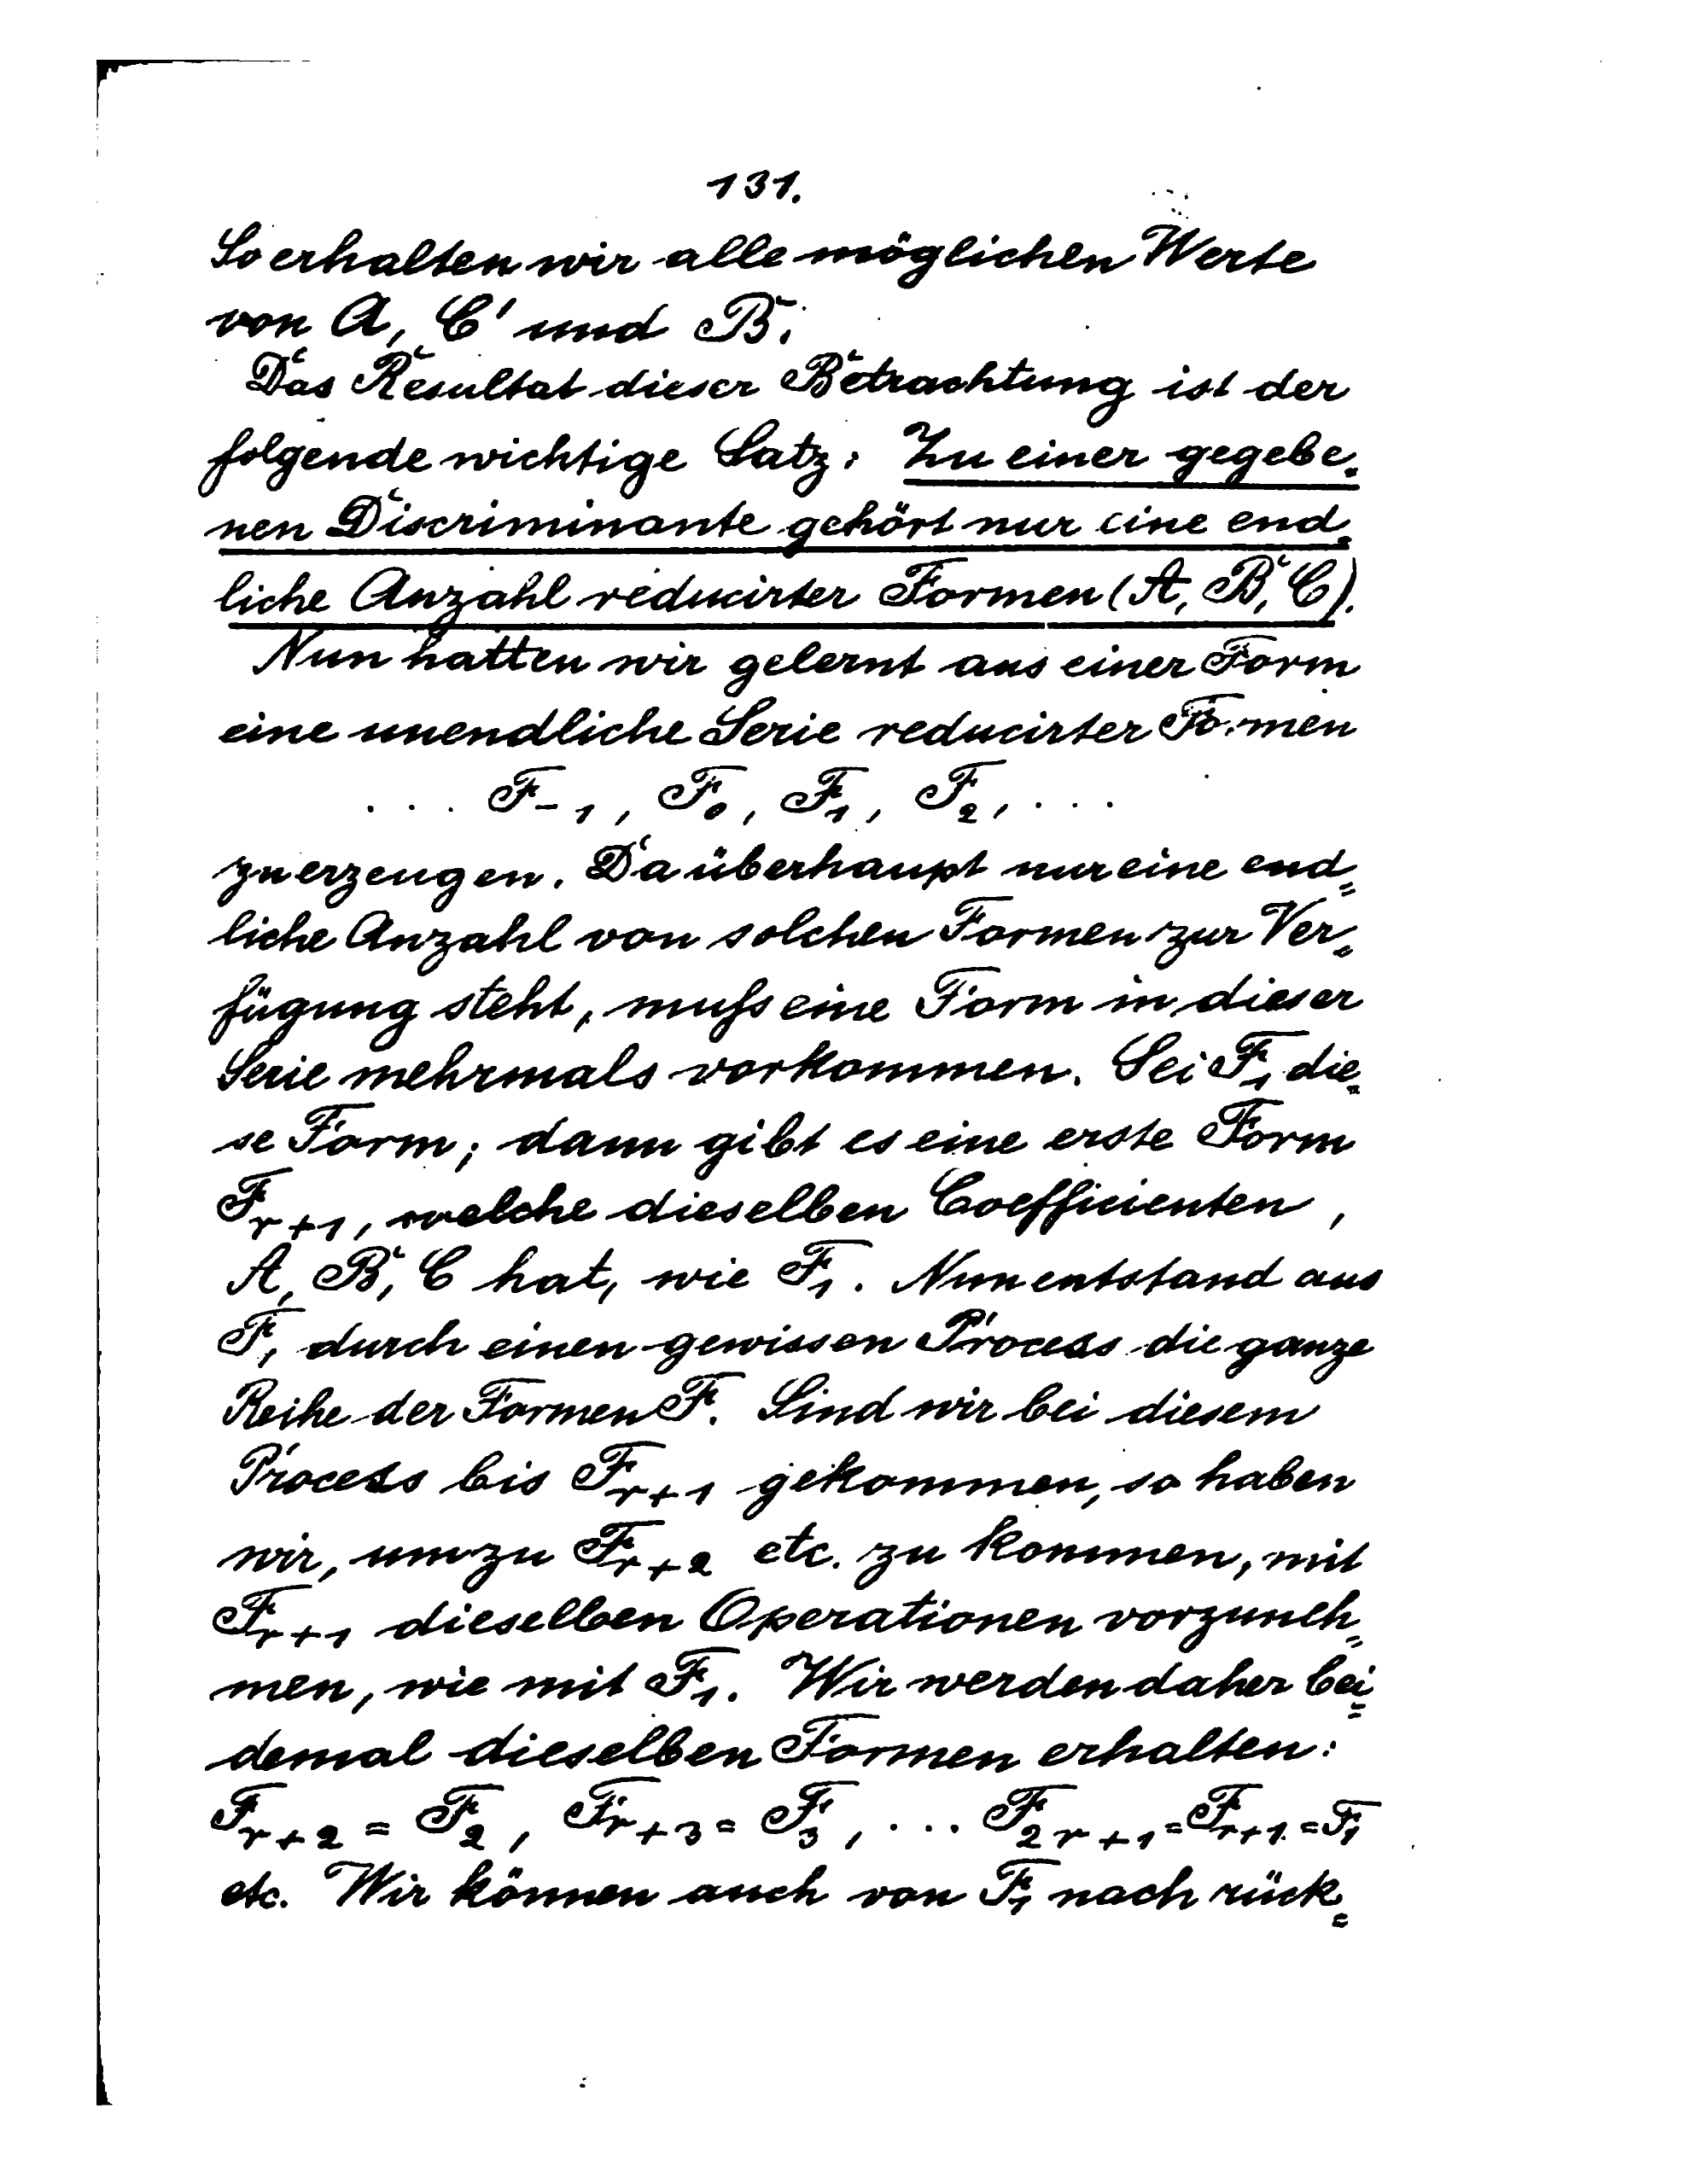 131.
So erhalten wir alle möglichen Werte
von A, C' und B.
Das Resultat dieser Betrachtung ist der
folgende wichtige Satz: Zu einer gegebe=
nen Discriminante gehört nur eine end=
liche Anzahl reducirter Formen (A, B, C).
Nun hatten wir gelernt aus einer Form
eine unendliche Serie reducirter Formen
. . . F₋₁, F₀, F₁, F₂, . . .
zu erzeugen. Da überhaupt nur eine end=
liche Anzahl von solchen Formen zur Ver=
fügung steht, muſs eine Form in dieser
Serie mehrmals vorkommen. Sei F₁ die=
se Form; dann gibt es eine erste Form
Fᵣ₊₁, welche dieselben Coefficienten,
A, B, C hat, wie F₁. Nun entstand aus
F₁ durch einen gewissen Process die ganze
Reihe der Formen F. Sind wir bei diesem
Process bis Fᵣ₊₁ gekommen, so haben
wir, um zu Fᵣ₊₂ etc. zu kommen, mit
Fᵣ₊₁ dieselben Operationen vorzuneh=
men, wie mit F₁. Wir werden daher bei=
demal dieselben Formen erhalten:
Fᵣ₊₂ = F₂, Fᵣ₊₃ = F₃, . . . F₂ᵣ₊₁ = Fᵣ₊₁ = F₁
etc. Wir können auch von F₁ nach rück=